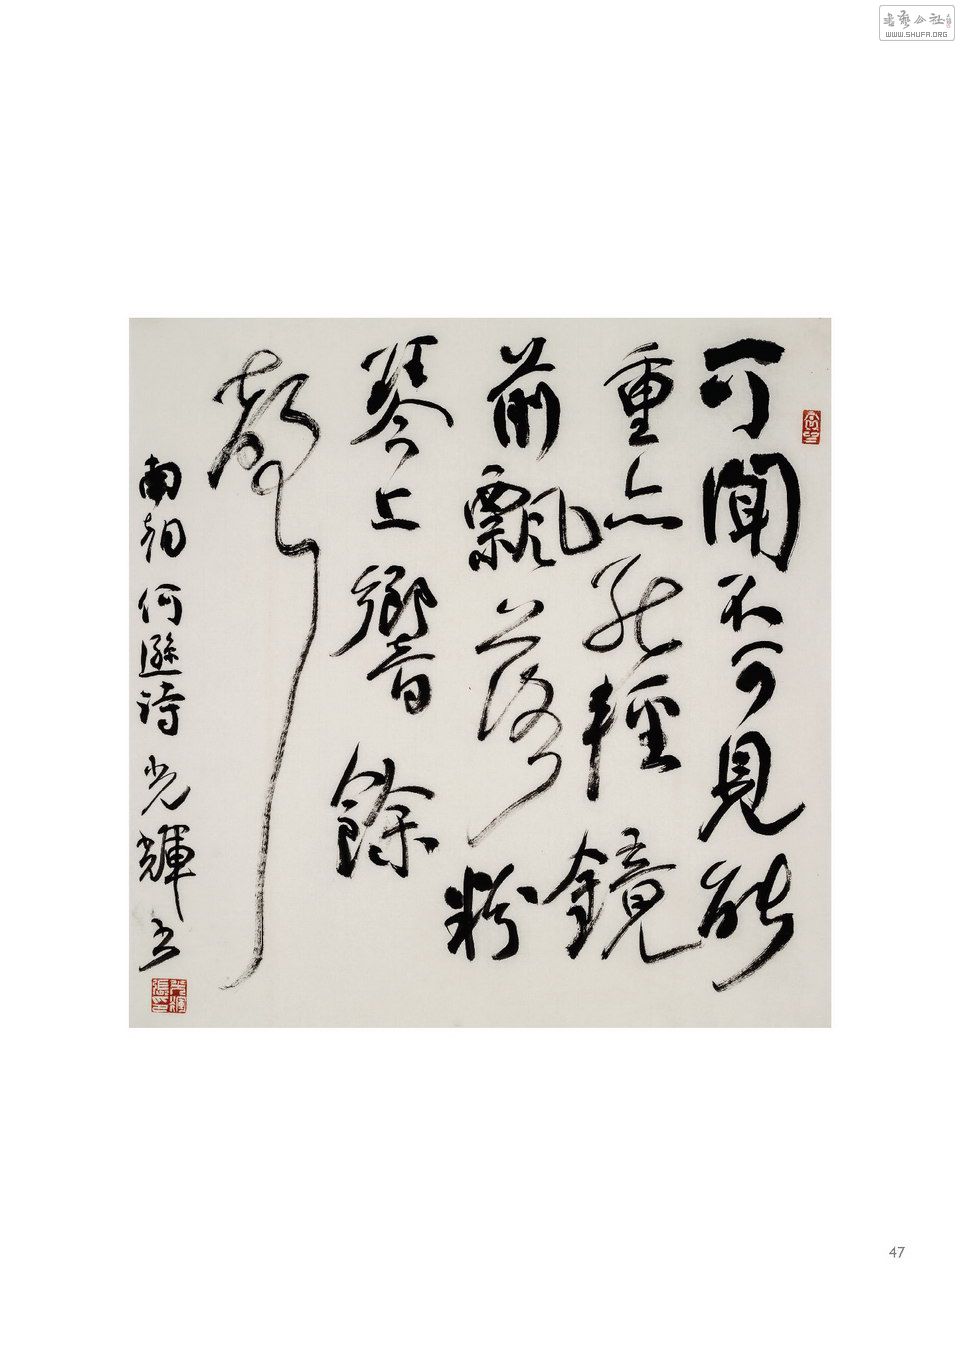 可聞不可見能
重亦能輕鏡
前飄落粉
琴上響餘
聲
南朝何遜诗光輝书
書藝公社
WWW.SHUFA.ORG
47